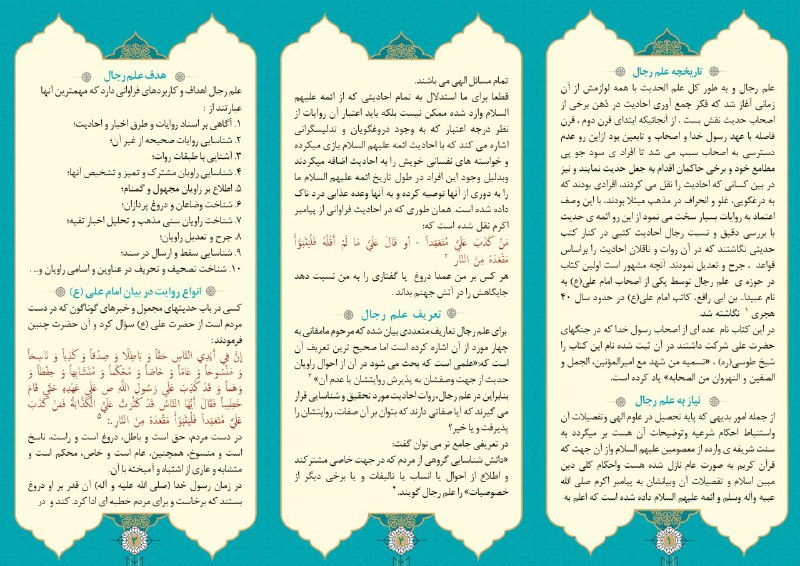 تاریخچه علم رجال
علم رجال و به طور کل علم الحدیث با همه لوازمش از آن
زمانی آغاز شد که فکر جمع آوری احادیث در ذهن برخی از
اصحاب حدیث نقش بست ، از آنجائیکه ابتدای قرن دوم ، قرن
فاصله با عهد رسول خدا و اصحاب و تابعین بود ازاین رو عدم
دسترسی به اصحاب سبب می شد تا افراد ی سود جو پی
مطامع خود و برخی حاکمان اقدام به جعل حدیث نمایند و نیز
در بین کسانی که احادیث را نقل می کردند، افرادی بودند که
به درغگویی، غلو و انحراف در مذهب مبتلا بودند. با این وصف
اعتماد به روایات بسیار سخت می نمود از این رو ائمه ی حدیث
با بررسی دقیق و نسبت رجال احادیث کتبی در کنار کتب
حدیثی نگاشتند که در آن روات و ناقلان احادیث را براساس
قواعد ، جرح و تعدیل نمودند. آنچه مشهور است اولین کتاب
در حوزه ی علم رجال توسط یکی از اصحاب امام علی(ع) به
نام عبیدا.. بن ابی رافع، کاتب امام علی(ع) در حدود سال ۴۰
هجری ۱ نگاشته شد.
در این کتاب نام عده ای از اصحاب رسول خدا که در جنگهای
حضرت علی شرکت داشتند در آن ثبت شده نام این کتاب را
شیخ طوسی(ره) ، «تسمیه من شهد مع امیرالمؤنین، الجمل و
الصفین و النهروان من الصحابه» یاد کرده است.
نیاز به علم رجال
از جمله امور بدیهی که پایه تحصیل در علوم الهی وتفصیلات آن
واستنباط احکام شرعیه وتوضیحات آن هست بر میگردد به
سنت شریفه ی وارده از معصومین علیهم السلام واز آن جهت که
قرآن کریم به صورت عام نازل شده هست واحکام کلی دین
مبین اسلام و تفصیلات آن وبیانشان به پیامبر اکرم صلی الله
عبیه وآله وسلم و ائمه علیهم السلام داده شده است که اعلم به
۱
تمام مسائل الهی می باشند.
قطعا برای ما استدلال به تمام احادیثی که از ائمه علیهم
السلام وارد شده ممکن نیست بلکه باید اعتبار آن روایات از
نظر درجه اعتبار که به وجود دروغگویان و تدلیسگرانی
اشاره می کند که با احادیث ائمه علیهم السلام بازی میکرده
و خواسته های نفسانی خویش را به احادیث اضافه میکردند
وبدلیل وجود این افراد در طول تاریخ ائمه علیهم السلام ما
را به دوری از آنها توصیه کرده و به آنها وعده عذابی درد ناک
داده شده است. همان طوری که در احادیث فراوانی از پیامبر
اکرم نقل شده است که:
مَنْ کَذَبَ عَلَيَّ مُتَعَمِّداً - أو قَالَ عَلَيَّ مَا لَمْ أَقُلْهُ فَلْيَتَبَوَّأْ
مَقْعَدَهُ مِنَ النَّارِ ۲
هر کس بر من عمدا دروغ یا گفتاری را به من نسبت دهد
جایگاهش را در آتش جهنم بداند .
تعریف علم رجال
برای علم رجال تعاریف متعددی بیان شده که مرحوم مامقانی به
چهار مورد از آن اشاره کرده است اما صحیح ترین تعریف آن
است که:«علمی است که بحث می شود در آن از احوال راویان
حدیث از جهت وصفشان به پذیرش روایتشان یا عدم آن» ۳
بنابراین در علم رجال، روات احادیث مورد تحقیق و شناسایی قرار
می گیرند که آیا صفاتی دارند که بتوان بر آن صفات، روایتشان را
پذیرفت و یا خیر؟
در تعریفی جامع تر می توان گفت:
«دانش شناسایی گروهی از مردم که در جهت خاصی مشترکند
و اطلاع از احوال یا انساب یا تالیفات و یا برخی دیگر از
خصوصیات» را علم رجال گویند.۴
۲
هدف علم رجال
علم رجال اهداف و کاربردهای فراوانی دارد که مهمترین آنها
عبارتند از :
۱. آگاهی بر اسناد روایات و طرق اخبار و احادیث؛
۲. شناسایی روایات صحیحه از غیر آن؛
۳. آشنایی با طبقات روات؛
۴. شناسایی راویان مشترک و تمیز و تشخیص آنها؛
۵. اطلاع بر راویان مجهول و گمنام؛
۶. شناخت وضاعان و دروغ پردازان؛
۷. شناخت راویان سنی مذهب و تحلیل اخبار تقیه؛
۸. جرح و تعدیل راویان؛
۹. شناسایی سقط و ارسال در سند؛
۱۰. شناخت تصحیف و تحریف در عناوین و اسامی راویان و... .
انواع روایت در بیان امام علی (ع)
کسی در باب حدیثهای مجعول و خبرهای گوناگون که در دست
مردم است از حضرت علی (ع) سؤال کرد و آن حضرت چنین
فرمودند:
إِنَّ فِي أَيْدِي النَّاسِ حَقّاً وَ بَاطِلًا وَ صِدْقاً وَ كَذِباً وَ نَاسِخاً
وَ مَنْسُوخاً وَ عَامّاً وَ خَاصّاً وَ مُحْكَماً وَ مُتَشَابِهاً وَ حِفْظاً وَ
وَهْماً وَ قَدْ كُذِبَ عَلَى رَسُولِ اللَّهِ ص عَلَى عَهْدِهِ حَتَّى قَامَ
خَطِيباً فَقَالَ أَيُّهَا النَّاسُ قَدْ كَثُرَتْ عَلَيَّ الْكَذَّابَةُ فَمَنْ كَذَبَ
عَلَيَّ مُتَعَمِّداً فَلْيَتَبَوَّأْ مَقْعَدَهُ مِنَ النَّارِ.: ۵
در دست مردم، حق است و باطل، دروغ است و راست، ناسخ
است و منسوخ، همچنین، عام است و خاص، محکم است و
متشابه و عاری از اشتباه و آمیخته با آن.
در زمان رسول خدا (صلی الله علیه و آله) آن قدر بر او دروغ
بستند که برخاست و برای مردم خطبه ای ادا کرد. کند و در
۳